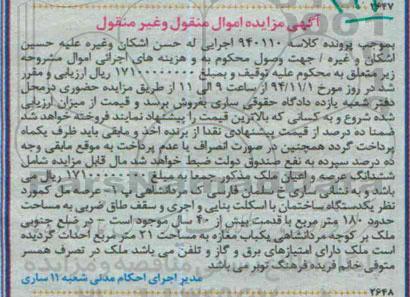 ۲۶۴۷
آگهی مزایده اموال منقول وغیر منقول
بموجب پرونده کلاسه ۹۴۰۱۱۰ اجرایی له حسن اشکان وغیره علیه حسین
اشکان و غیره / جهت وصول محکوم به و هزینه های اجرائی اموال مشروحه
زیر متعلق به محکوم علیه توقیف و بمبلغ ۱۷۱۰۰۰۰۰۰۰ ریال ارزیابی و مقرر
شد در روز مورخ ۹۴/۱۱/۱ از ساعت ۹ الی ۱۱ از طریق مزایده حضوری درمحل
دفتر شعبه یازده دادگاه حقوقی ساری بفروش برسد و قیمت از میزان ارزیابی
شده شروع و به کسانی که بالاترین قیمت را پیشنهاد نمایند فروخته خواهد شد
ضمنا ده درصد از قیمت پیشنهادی نقدا از برنده اخذ و مابقی باید ظرف یکماه
پرداخت گردد همچنین در صورت انصراف یا عدم پرداخت به موقع مابقی وجه
ده درصد سپرده به نفع صندوق دولت ضبط خواهد شد مال قابل مزایده شامل
ششدانگ عرصه و اعیان ملک مذکور جمعا به مبلغ ۱۷۱۰۰۰۰۰۰۰ ریال می
باشد و به نشانی ساری خیابان قارن کوچه گرداشاهی است عرصه ملک کمرد
نظر یکدستگاه ساختمان با اسکلت بنایی و آجری و سقف طاق ضربی به مساحت
حدود ۱۸۰ متر مربع با قدمت بیش از ۴۰ سال موجود است – در ضلع جنوبی
ملک بر کوچه مرداشاهی یکباب مغازه به مساحت ۲۱ متر مربع احداث گردیده
است ملک دارای امتیازهای برق و گاز و تلفن می باشد ملک در تصرف همسر
متوفی خانم فریده فرهنگ نویر می باشد
مدیر اجرای احکام مدنی شعبه ۱۱ ساری
۲۶۴۸